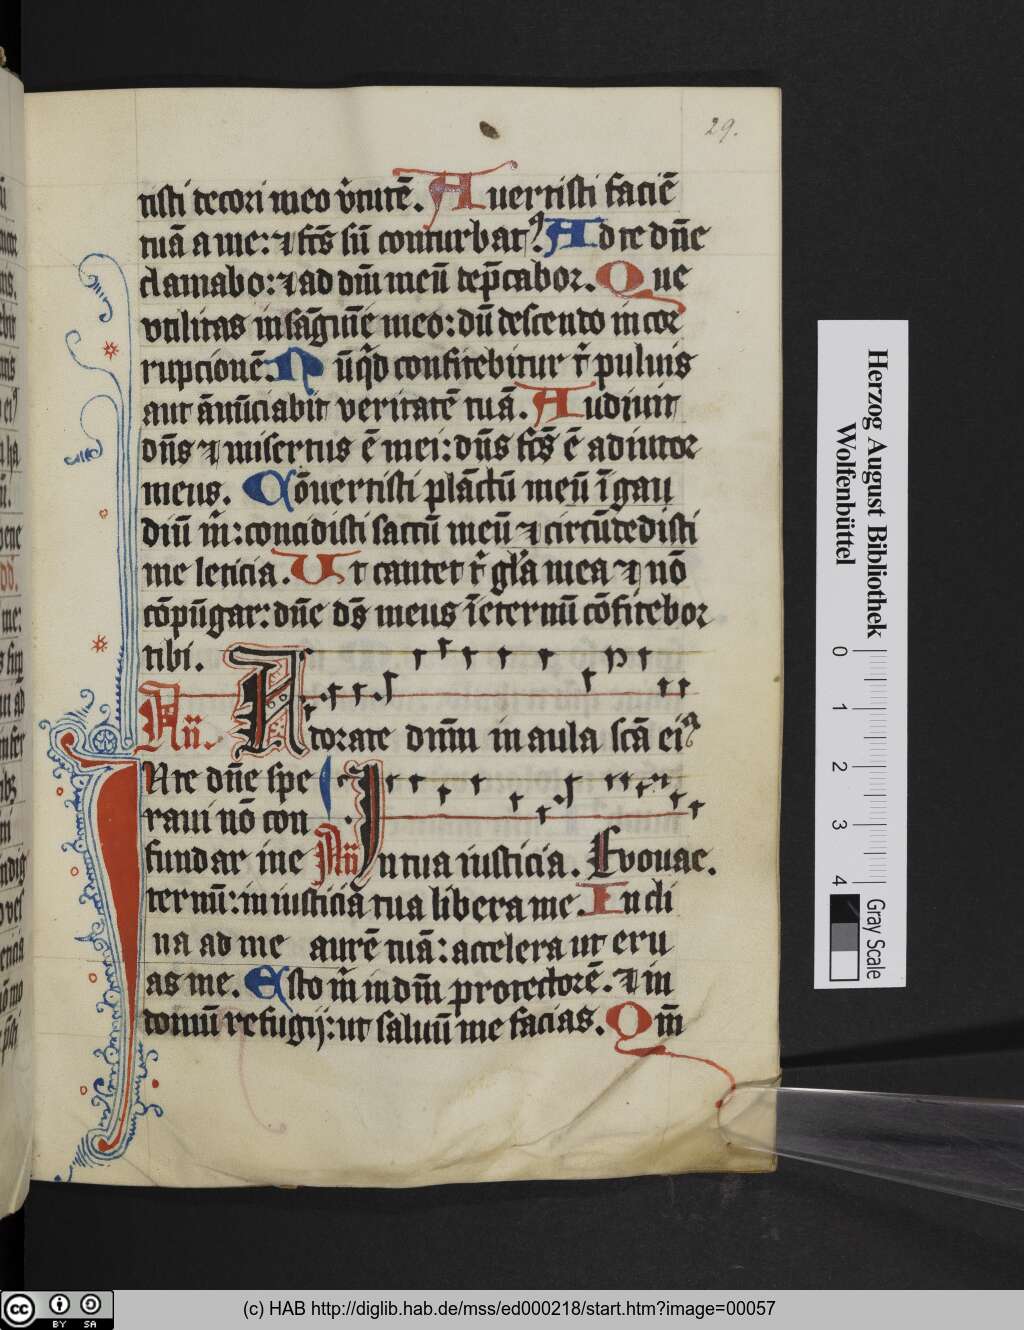 29.
tisti decori meo v̄tutē. Auertisti faciē
tuā a me: ⁊ fc̄s sū conturbatꝰ. Ad te dn̄e
clamabo: ⁊ ad dm̄ meū dep̄cabor. Que
vtilitas in sāgwīe meo: dū descendo in cor
rupcionē. Nūq̄d confitebitur t̄ puluis
aut ānūciabit veritatē tuā. Audiuit
dn̄s ⁊ misertus ē mei: dn̄s fc̄s ē adiutor
meus. Cōuertisti plāctū meū ī gau
diū m̄: concidisti saccū meū ⁊ circūdedisti
me leticia. Vt cantet t̄ gl̄a mea ⁊ nō
cōpūgar: dn̄e ds̄ meus ī eternū cōfitebor
tibi.
An̄. Adorate dnm̄ in aula sc̄a eiꝰ
IN te dn̄e spe
raui nō con
fundar in e An̄ In tua iusticia. Evouae.
ternū: in iusticia tua libera me. Incli
na ad me aurē tuā: accelera ut eru
as me. Esto m̄ in dm̄ protectorē. ⁊ in
domū refugij: ut saluū me facias. Qm̄
Herzog August Bibliothek
Wolfenbüttel
0 1 2 3 4
Gray Scale
cc BY SA
(c) HAB http://diglib.hab.de/mss/ed000218/start.htm?image=00057